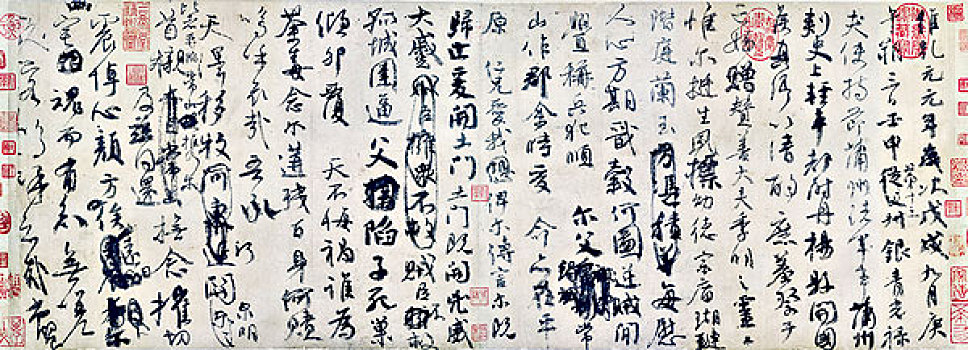 維乾元元年歲次戊戌九月庚
午朔三日壬申第十三叔銀青光祿
夫使持節蒲州諸軍事蒲州
刺史上輕車都尉丹楊縣開國
侯真卿以清酌庶羞祭于
亡姪贈贊善大夫季明之靈曰
惟爾挺生夙標幼德宗廟瑚璉
階庭蘭玉方憑積善每慰
人心方期戩穀何圖逆賊開
釁稱兵犯順爾父竭誠常
山作郡余時受命亦在平
原仁兄愛我俾爾傳言爾既
歸止爰開土門土門既開凶威
大蹙賊臣擁眾不救賊臣不救
孤城圍逼父陷子死巢
傾卵覆天不悔禍誰為
荼毒念爾遘殘百身何贖
嗚呼哀哉吾承
天澤移牧河關泉明
首櫬及茲同還撫念摧切
震悼心顏方俟遠日
宅魂而有知無嗟
久客嗚呼哀哉尚饗